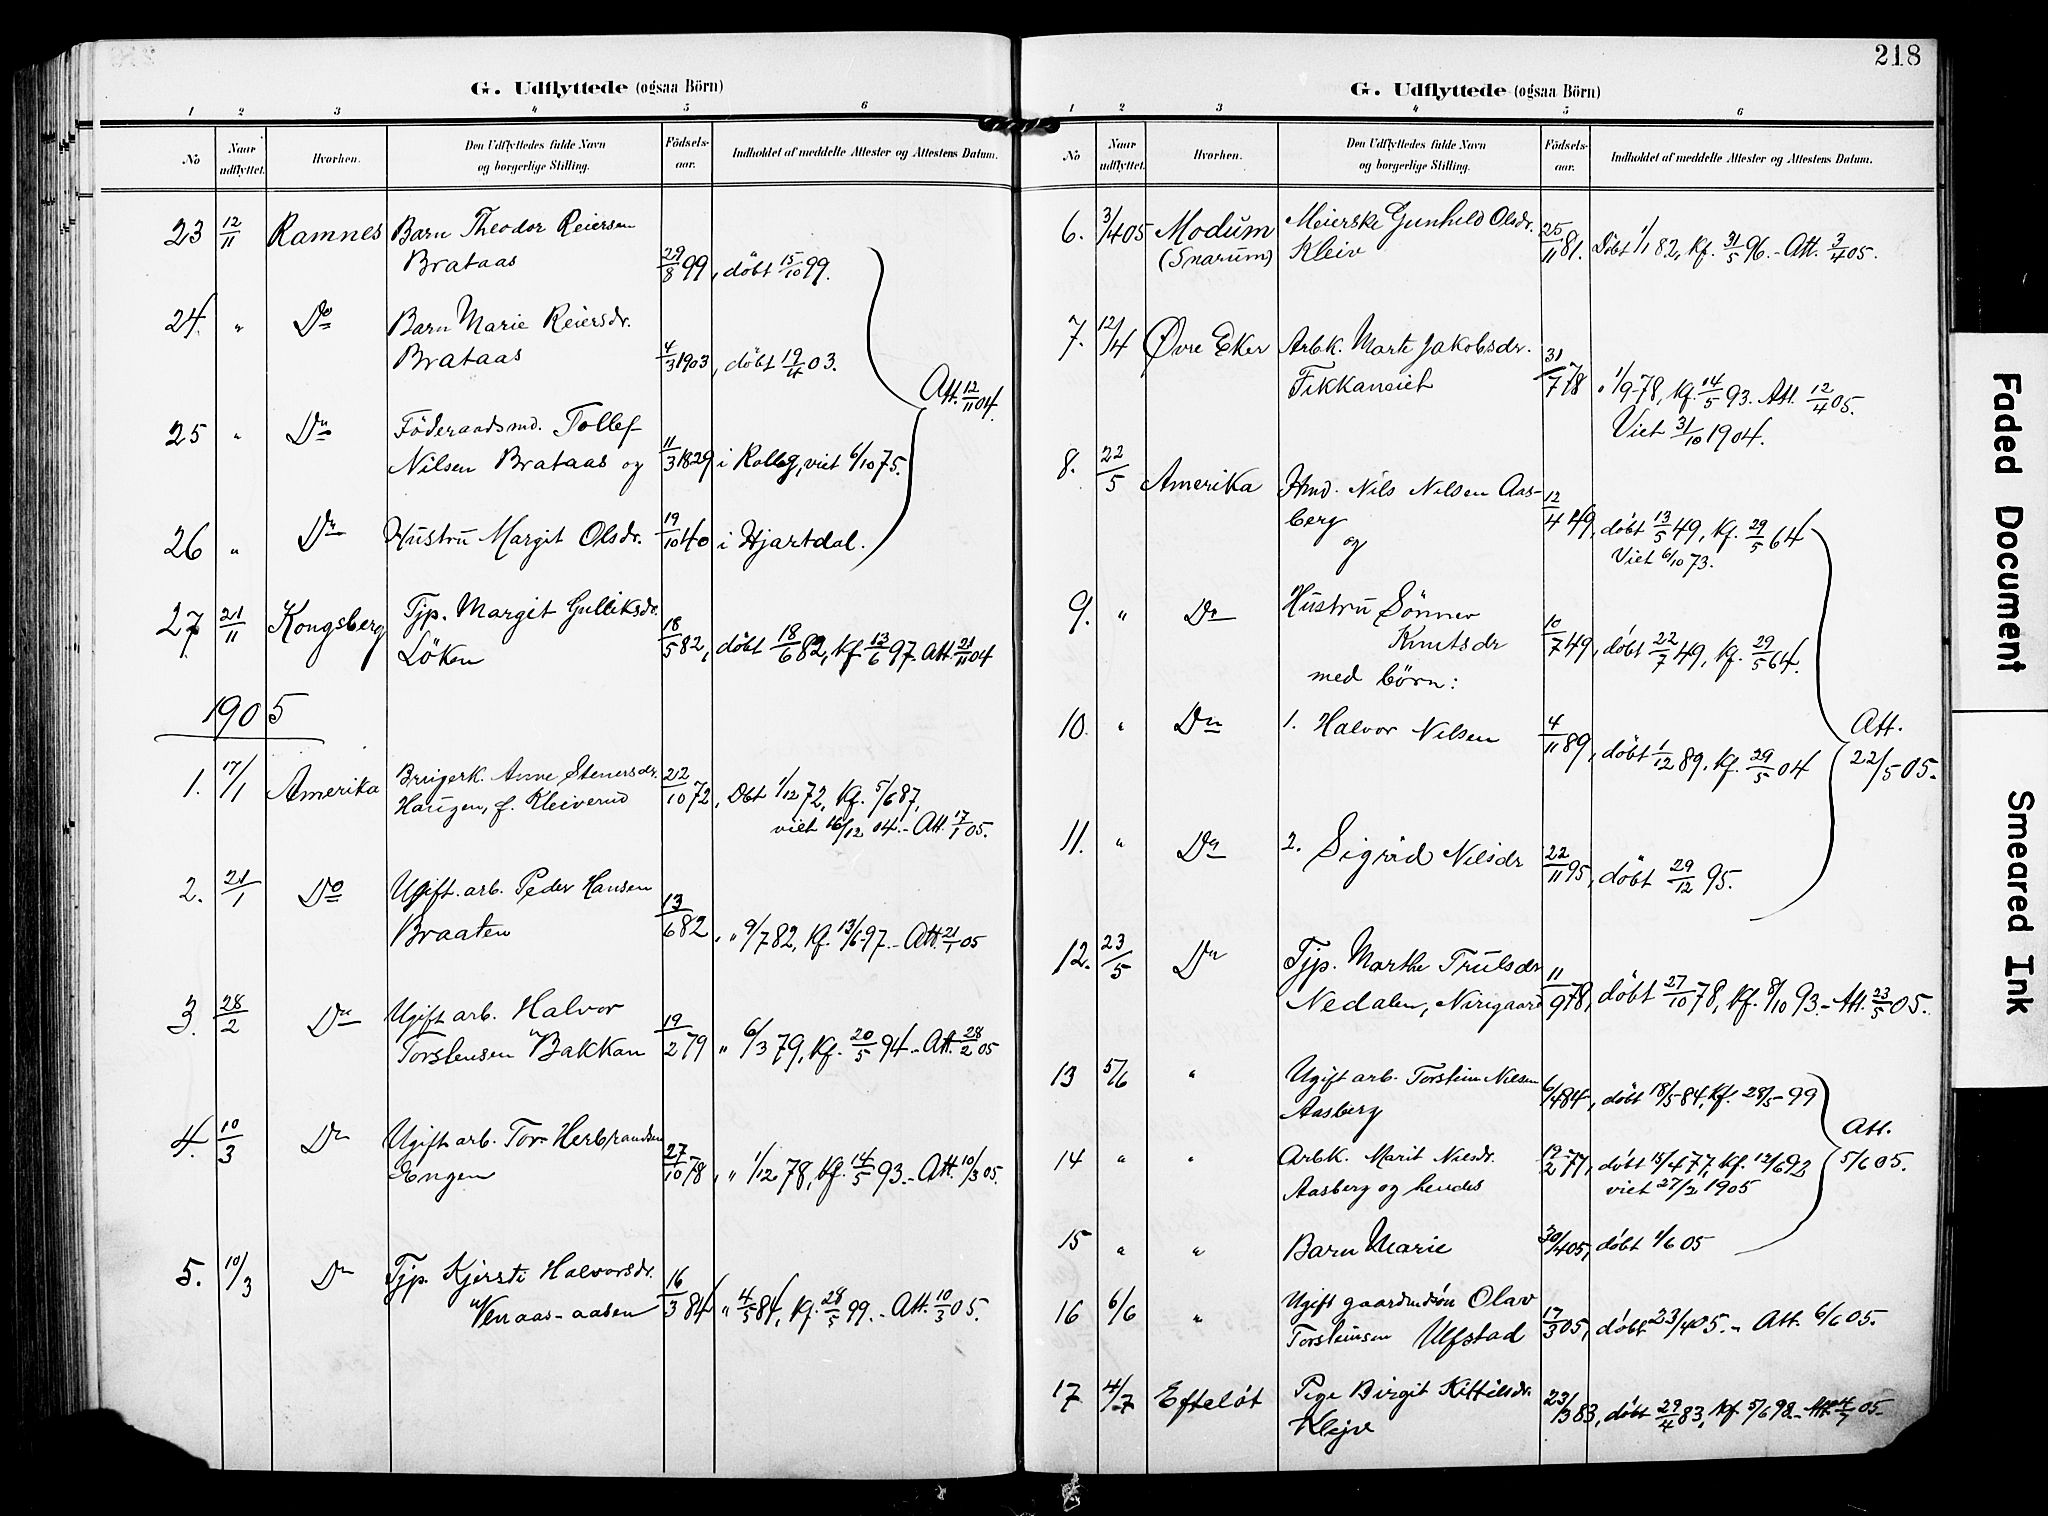 G. Udflyttede (ogsaa Börn)
1 2 3 4 5 6
No Naar udflyttet. Hvorhen. Den Udflyttedes fulde Navn og borgerlige Stilling. Födsels-aar. Indholdet af meddelte Attester og Attestens Datum.
23 12/11 Ramnes Barn Theodor Reiersen
Brataas 29/8 99, döbt 15/10 99.
24. " Do Barn Marie Reiersdr.
Brataas 4/3 1903, döbt 19/4 03.
Att. 12/11 04.
25 " Do Föderaadsmd. Tollef
Nilsen Brataas og 11/3 1829 i Rolleg, viet 6/10 75.
26 " Do Hustru Margit Olsdr. 19/10 40 i Hjartdal.
27. 21/11 Kongsberg Tjp. Margit Gulliksdr.
Löken 18/5 82, döbt 18/6 82, Kf. 13/6 97. Att. 21/11 04
1905
1. 17/1 Amerika Brugerk. Anne Stenersdr.
Haugen, f. Kleiverud 22/10 72, Dbt 1/12 72, Kf. 5/6 87,
viet 16/12 04. - Att. 17/1 05.
2. 21/1 Do Ugift. arb. Peder Hansen
Braaten 13/6 82, " 9/7 82, Kf. 13/6 97. - Att. 21/1 05
3. 28/2 Do Ugift arb. Halvor
Torstensen Bakkan 19/2 79 " 6/3 79, Kf. 20/5 94 - Att. 28/2 05
4. 10/3 Do Ugift arb. Tor Herbrandsen
Engen 27/10 78, " 1/12 78, Kf. 14/5 93. - Att. 10/3 05.
5. 10/3 Do Tjp. Kjersti Halvorsdr.
Venaas-aasen 16/3 84 " 4/5 84, Kf. 28/5 99. - Att. 10/3 05.
218
G. Udflyttede (ogsaa Börn)
1 2 3 4 5 6
No Naar udflyttet. Hvorhen. Den Udflyttedes fulde Navn og borgerlige Stilling. Födsels-aar. Indholdet af meddelte Attester og Attestens Datum.
6. 3/4 05 Modum Meierske Gunhild Olsdr.
(Snarum) Kleiv 25/11 81. Döbt 1/1 82, Kf. 31/5 96. - Att. 3/4 05.
7. 12/4 Øvre Eker Arbk. Marte Jakobsdr.
31/7 78 " 1/9 78, Kf. 14/5 93. Att. 12/4 05.
Viet 31/10 1904.
8. 22/5 Amerika Hmd. Nils Nilsen Aas-
berg 12/4 49, döbt 13/5 49, Kf. 29/5 64
og Viet 6/10 73.
9. " Do Hustru Sönnev
Knutsdr 10/7 49, döbt 22/7 49, Kf. 29/5 64.
med börn:
10. " Do 1. Halvor Nilsen 4/11 89, döbt 1/12 89. Kf. 29/5 04
Att.
22/5 05.
11. " Do 2. Sigrid Nilsdr 22/11 95, döbt 29/12 95.
12. 23/5 Do Tjp. Marthe Trulsdr
Nedalen, 11/9 78, döbt 27/10 78, Kf. 8/10 93. - Att. 23/5 05.
13 5/6 " Ugift arb. Torstein Nilsen
Aasberg 6/4 84, döbt 18/5 84, Kf. 28/5 99
14 " " Arbk. Marit Nilsdr.
Aasberg og hendes 19/2 77, döbt 15/4 77, Kf. 12/6 92
viet 27/2 1905
Att.
5/6 05.
15 " " Barn Marie 30/4 05, döbt 1/6 05
16 6/6 " Ugift gaardmdsön Olav
Torsteinsen Ulfstad 17/3 05, döbt 23/4 05. - Att. 6/6 05.
17 4/7 Efteløt Pige Birgit Kittilsdr.
Klejv 23/3 83, döbt 29/4 83, Kf. 5/6 98. - Att. 4/7 05.
Faded Document
Smeared Ink